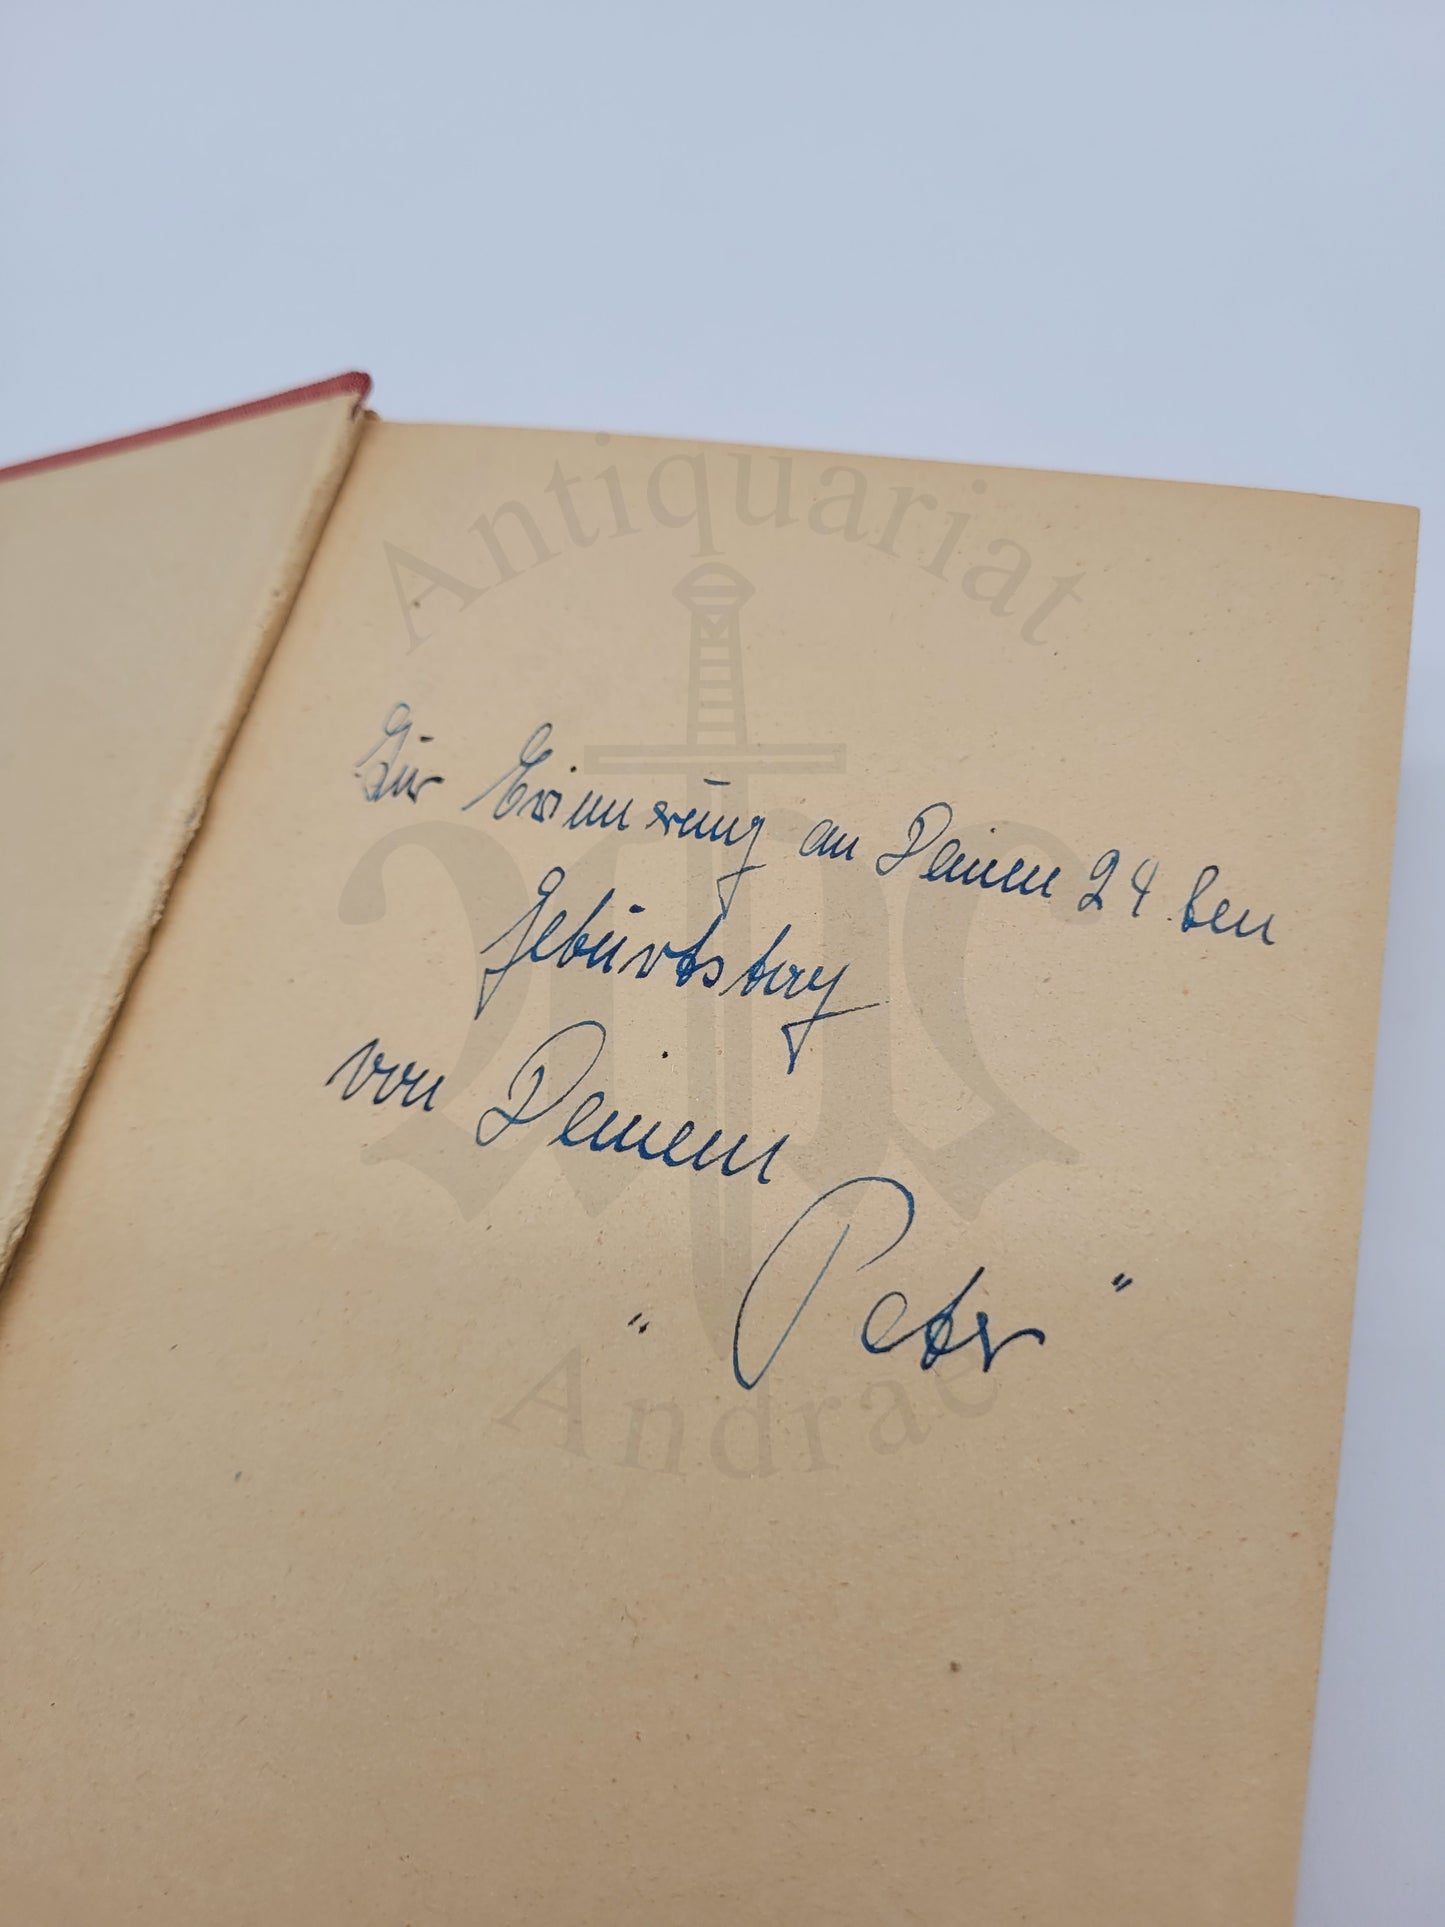 Antiquariat
Zur Erinnerung an Deinen 24 ten
Geburtstag
von Deinem
"Peter"
Andrae